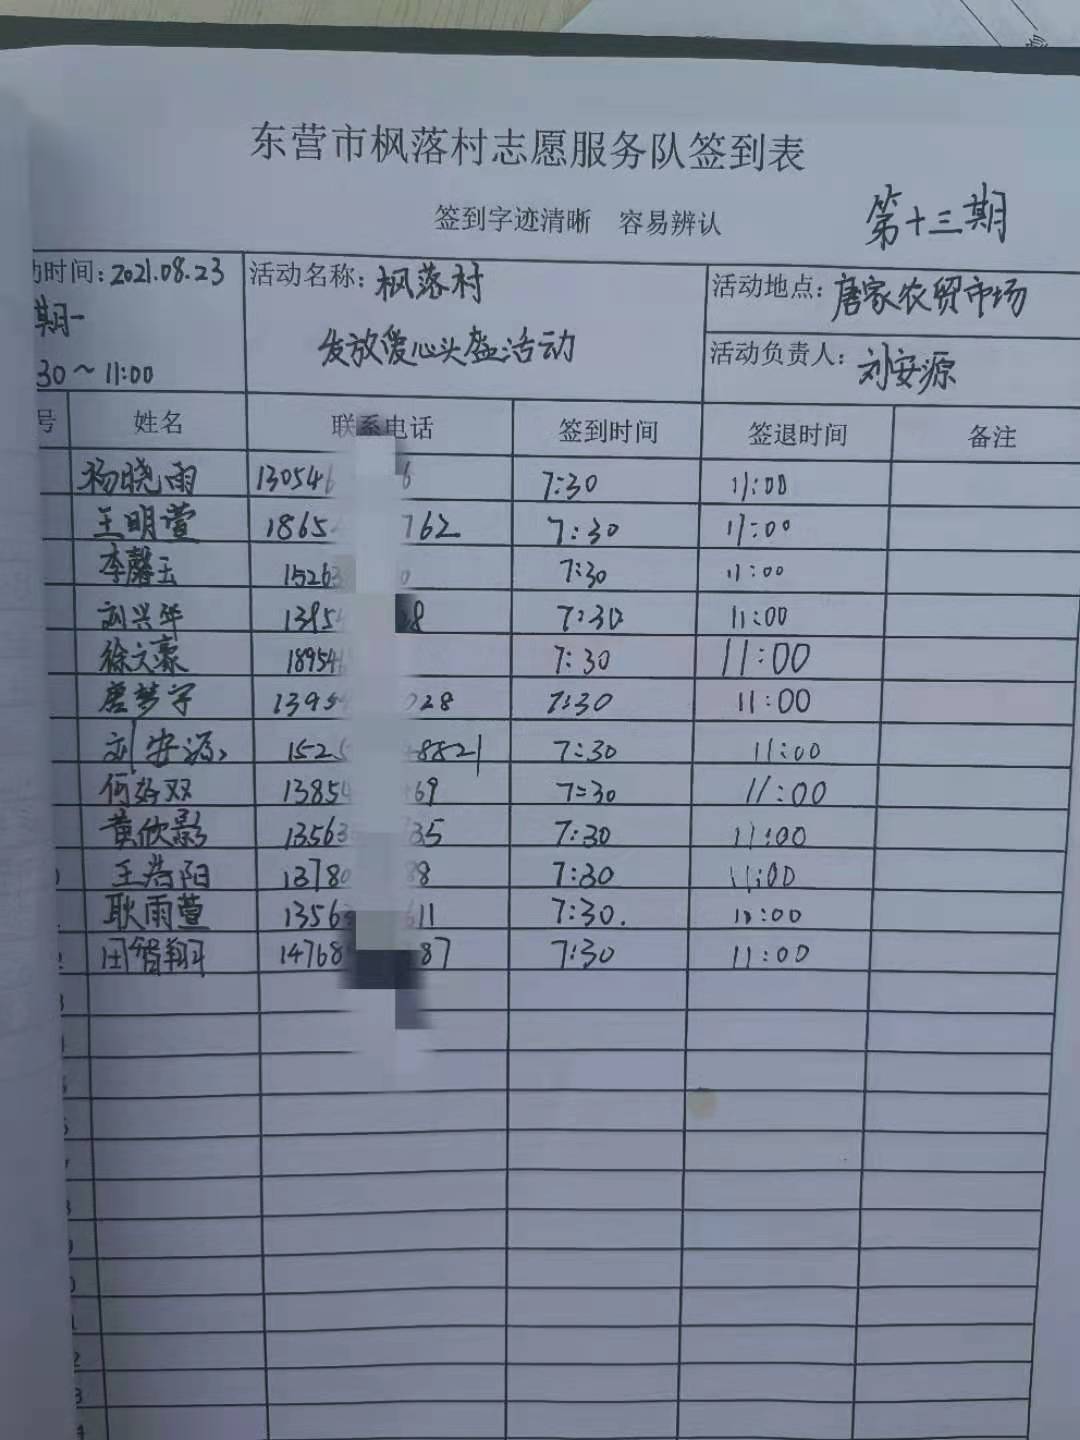 东营市枫落村志愿服务队签到表
签到字迹清晰 容易辨认
第十三期
动时间:2021.08.23
期一
30~11:00
活动名称:枫落村
发放爱心头盔活动
活动地点:唐家农贸市场
活动负责人:刘安源
号 姓名 联系电话 签到时间 签退时间 备注
杨晓雨 13054 6 7:30 11:00
王明萱 1865 762 7:30 11:00
李馨玉 15263 0 7:30 11:00
刘兴华 1395 8 7:30 11:00
徐文豪 18954 7:30 11:00
唐梦宇 1395 028 7:30 11:00
刘安源 1525 8821 7:30 11:00
何好双 13854 69 7:30 11:00
黄欣影 13563 35 7:30 11:00
王浩阳 13780 88 7:30 11:00
耿雨萱 1356 611 7:30. 11:00
2 田智翔 14768 87 7:30 11:00
3
4
5
6
7
8
9
0
1
2
3
4